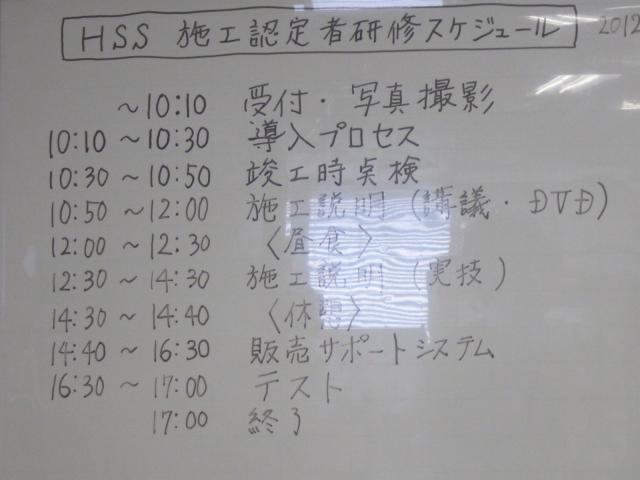 HSS 施工認定者研修スケジュール 2012
～10:10 受付・写真撮影
10:10 ～ 10:30 導入プロセス
10:30 ～ 10:50 竣工時点検
10:50 ～ 12:00 施工説明 (講議・DVD)
12:00 ～ 12:30 〈昼食〉
12:30 ～ 14:30 施工説明 (実技)
14:30 ～ 14:40 〈休憩〉
14:40 ～ 16:30 販売サポートシステム
16:30 ～ 17:00 テスト
17:00 終了